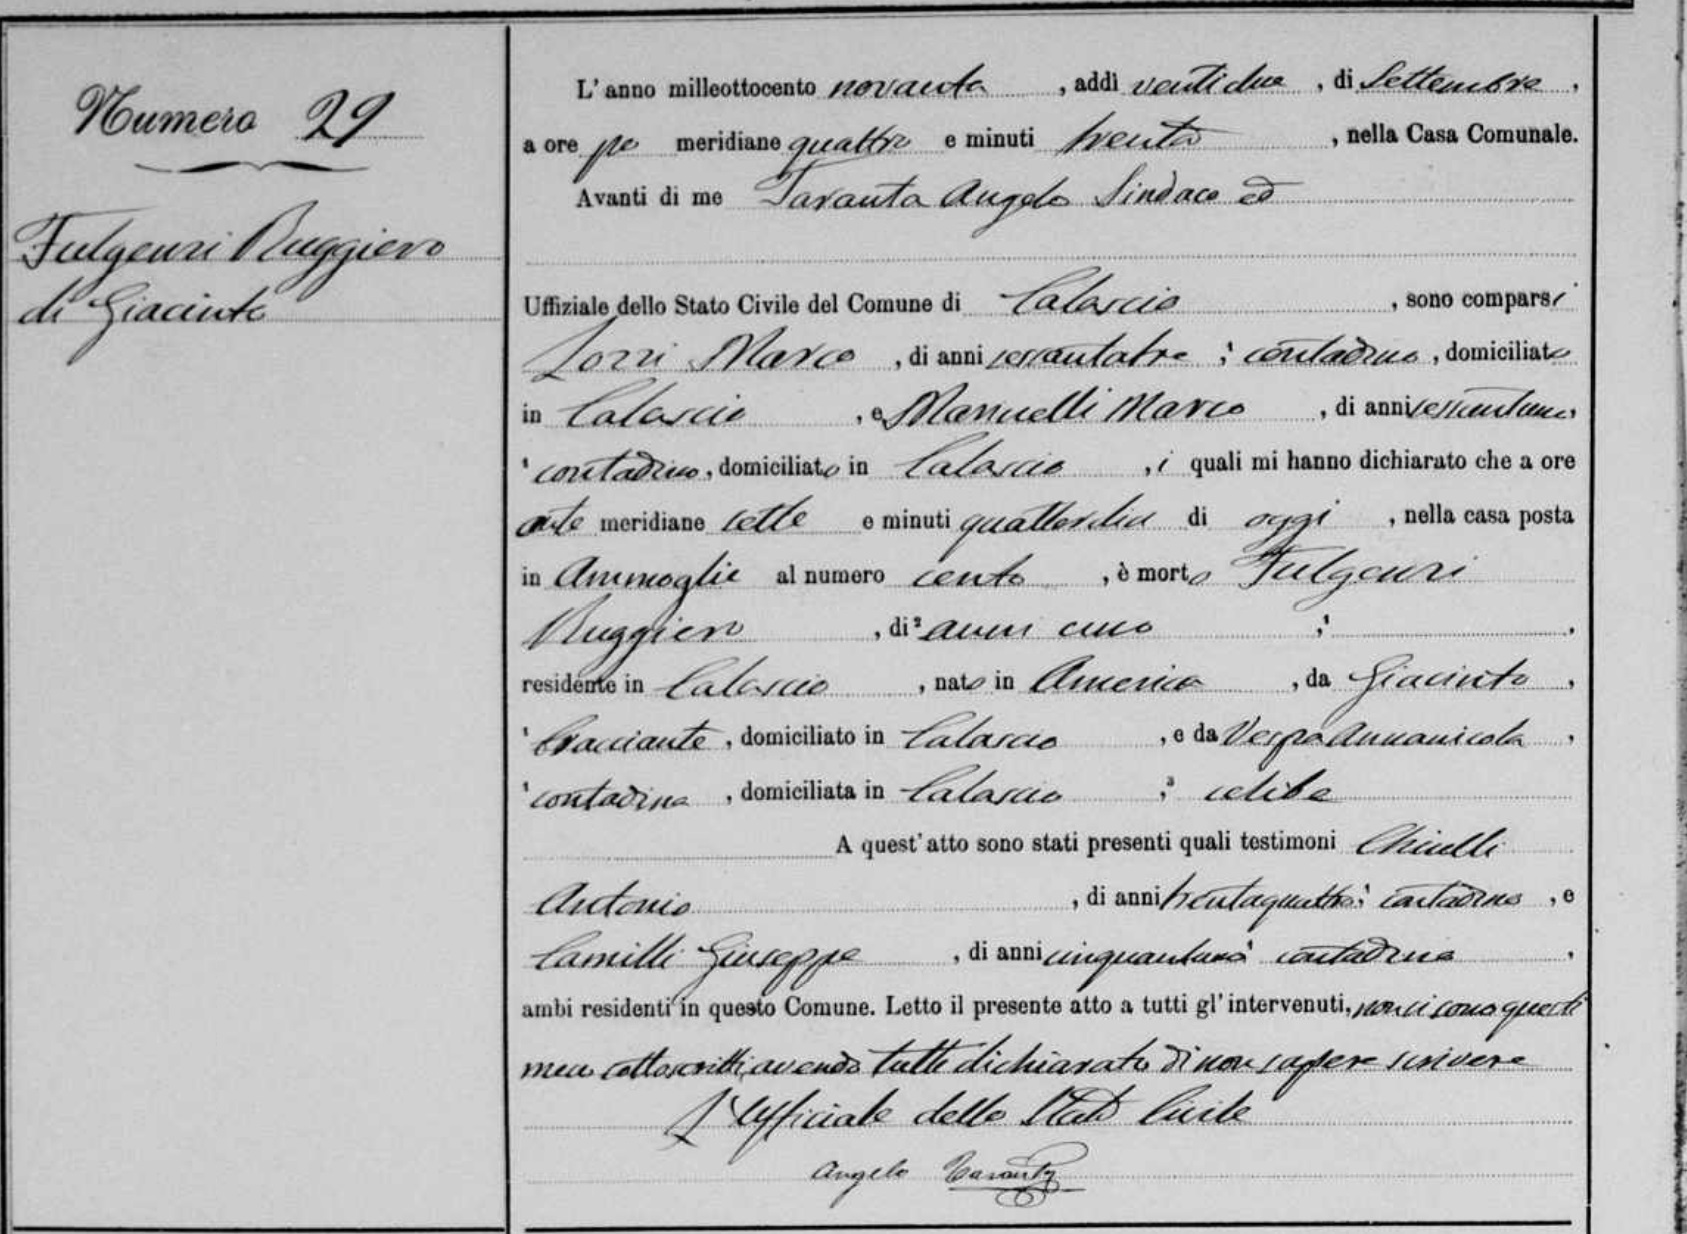 Numero 29
Fulgenzi Ruggiero
di Giacinto
L'anno milleottocento novanta, addì ventidue, di Settembre,
a ore po meridiane quattro e minuti trenta, nella Casa Comunale.
Avanti di me Taranta Angelo Sindaco ed
Uffiziale dello Stato Civile del Comune di Calascio, sono comparsi
Marco, di anni sessantatre, contadino, domiciliato
in Calascio, e Marinelli Marco, di anni sessantuno,
contadino, domiciliato in Calascio, i quali mi hanno dichiarato che a ore
ante meridiane sette e minuti quattordici di oggi, nella casa posta
in Ammoglie al numero cento, è morto Fulgenzi
Ruggiero, di anni uno,
residente in Calascio, nato in America, da Giacinto,
bracciante, domiciliato in Calascio, e da Vespa Annanicola,
contadina, domiciliata in Calascio, celibe
A quest'atto sono stati presenti quali testimoni
Antonio, di anni trentaquattro, contadino, e
Camilli Giuseppe, di anni cinquantuno, contadino,
ambi residenti in questo Comune. Letto il presente atto a tutti gl'intervenuti, non si sono questi
meco sottoscritti, avendo tutti dichiarato di non sapere scrivere
L'Ufficiale dello Stato Civile
Angelo Taranta